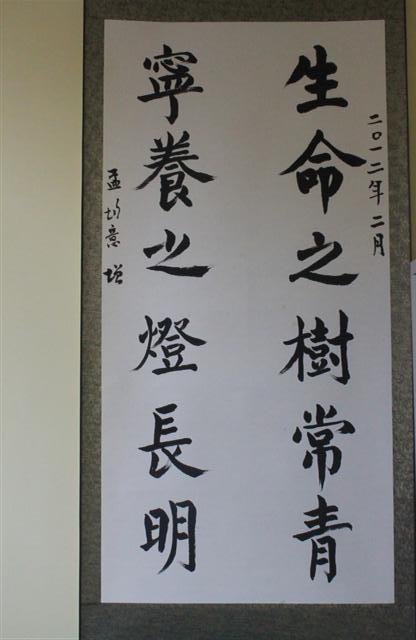 二〇一二年二月
生命之樹常青
寧養之燈長明
孟意增